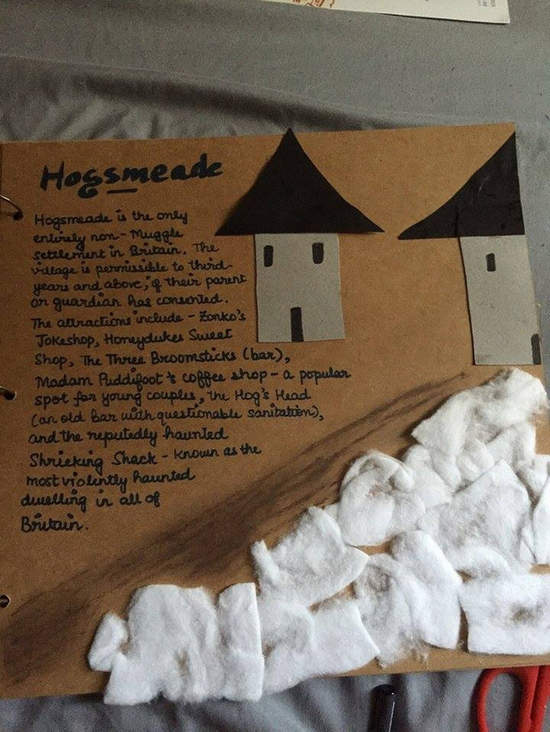 Hogsmeade
Hogsmeade is the only
entirely non-Muggle
settlement in Britain. The
village is permissible to third-
years and above, if their parent
or guardian has consented.
The attractions include - Zonko's
Jokeshop, Honeydukes Sweet
Shop, The Three Broomsticks (bar),
Madam Puddifoot's coffee shop - a popular
spot for young couples, the Hog's Head
(an old bar with questionable sanitation),
and the reputedly haunted
Shrieking Shack - known as the
most violently haunted
dwelling in all of
Britain.